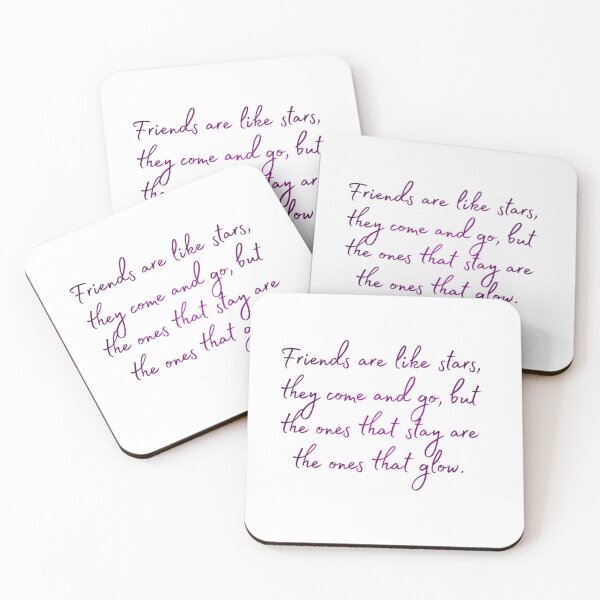 Friends are like stars,
they come and go, but
the stay ar
glow
Friends are like stars,
they come and go, but
the ones that stay are
the ones that glow.
Friends are like stars,
they come and go, but
the ones that stay are
the ones that g
Friends are like stars,
they come and go, but
the ones that stay are
the ones that glow.